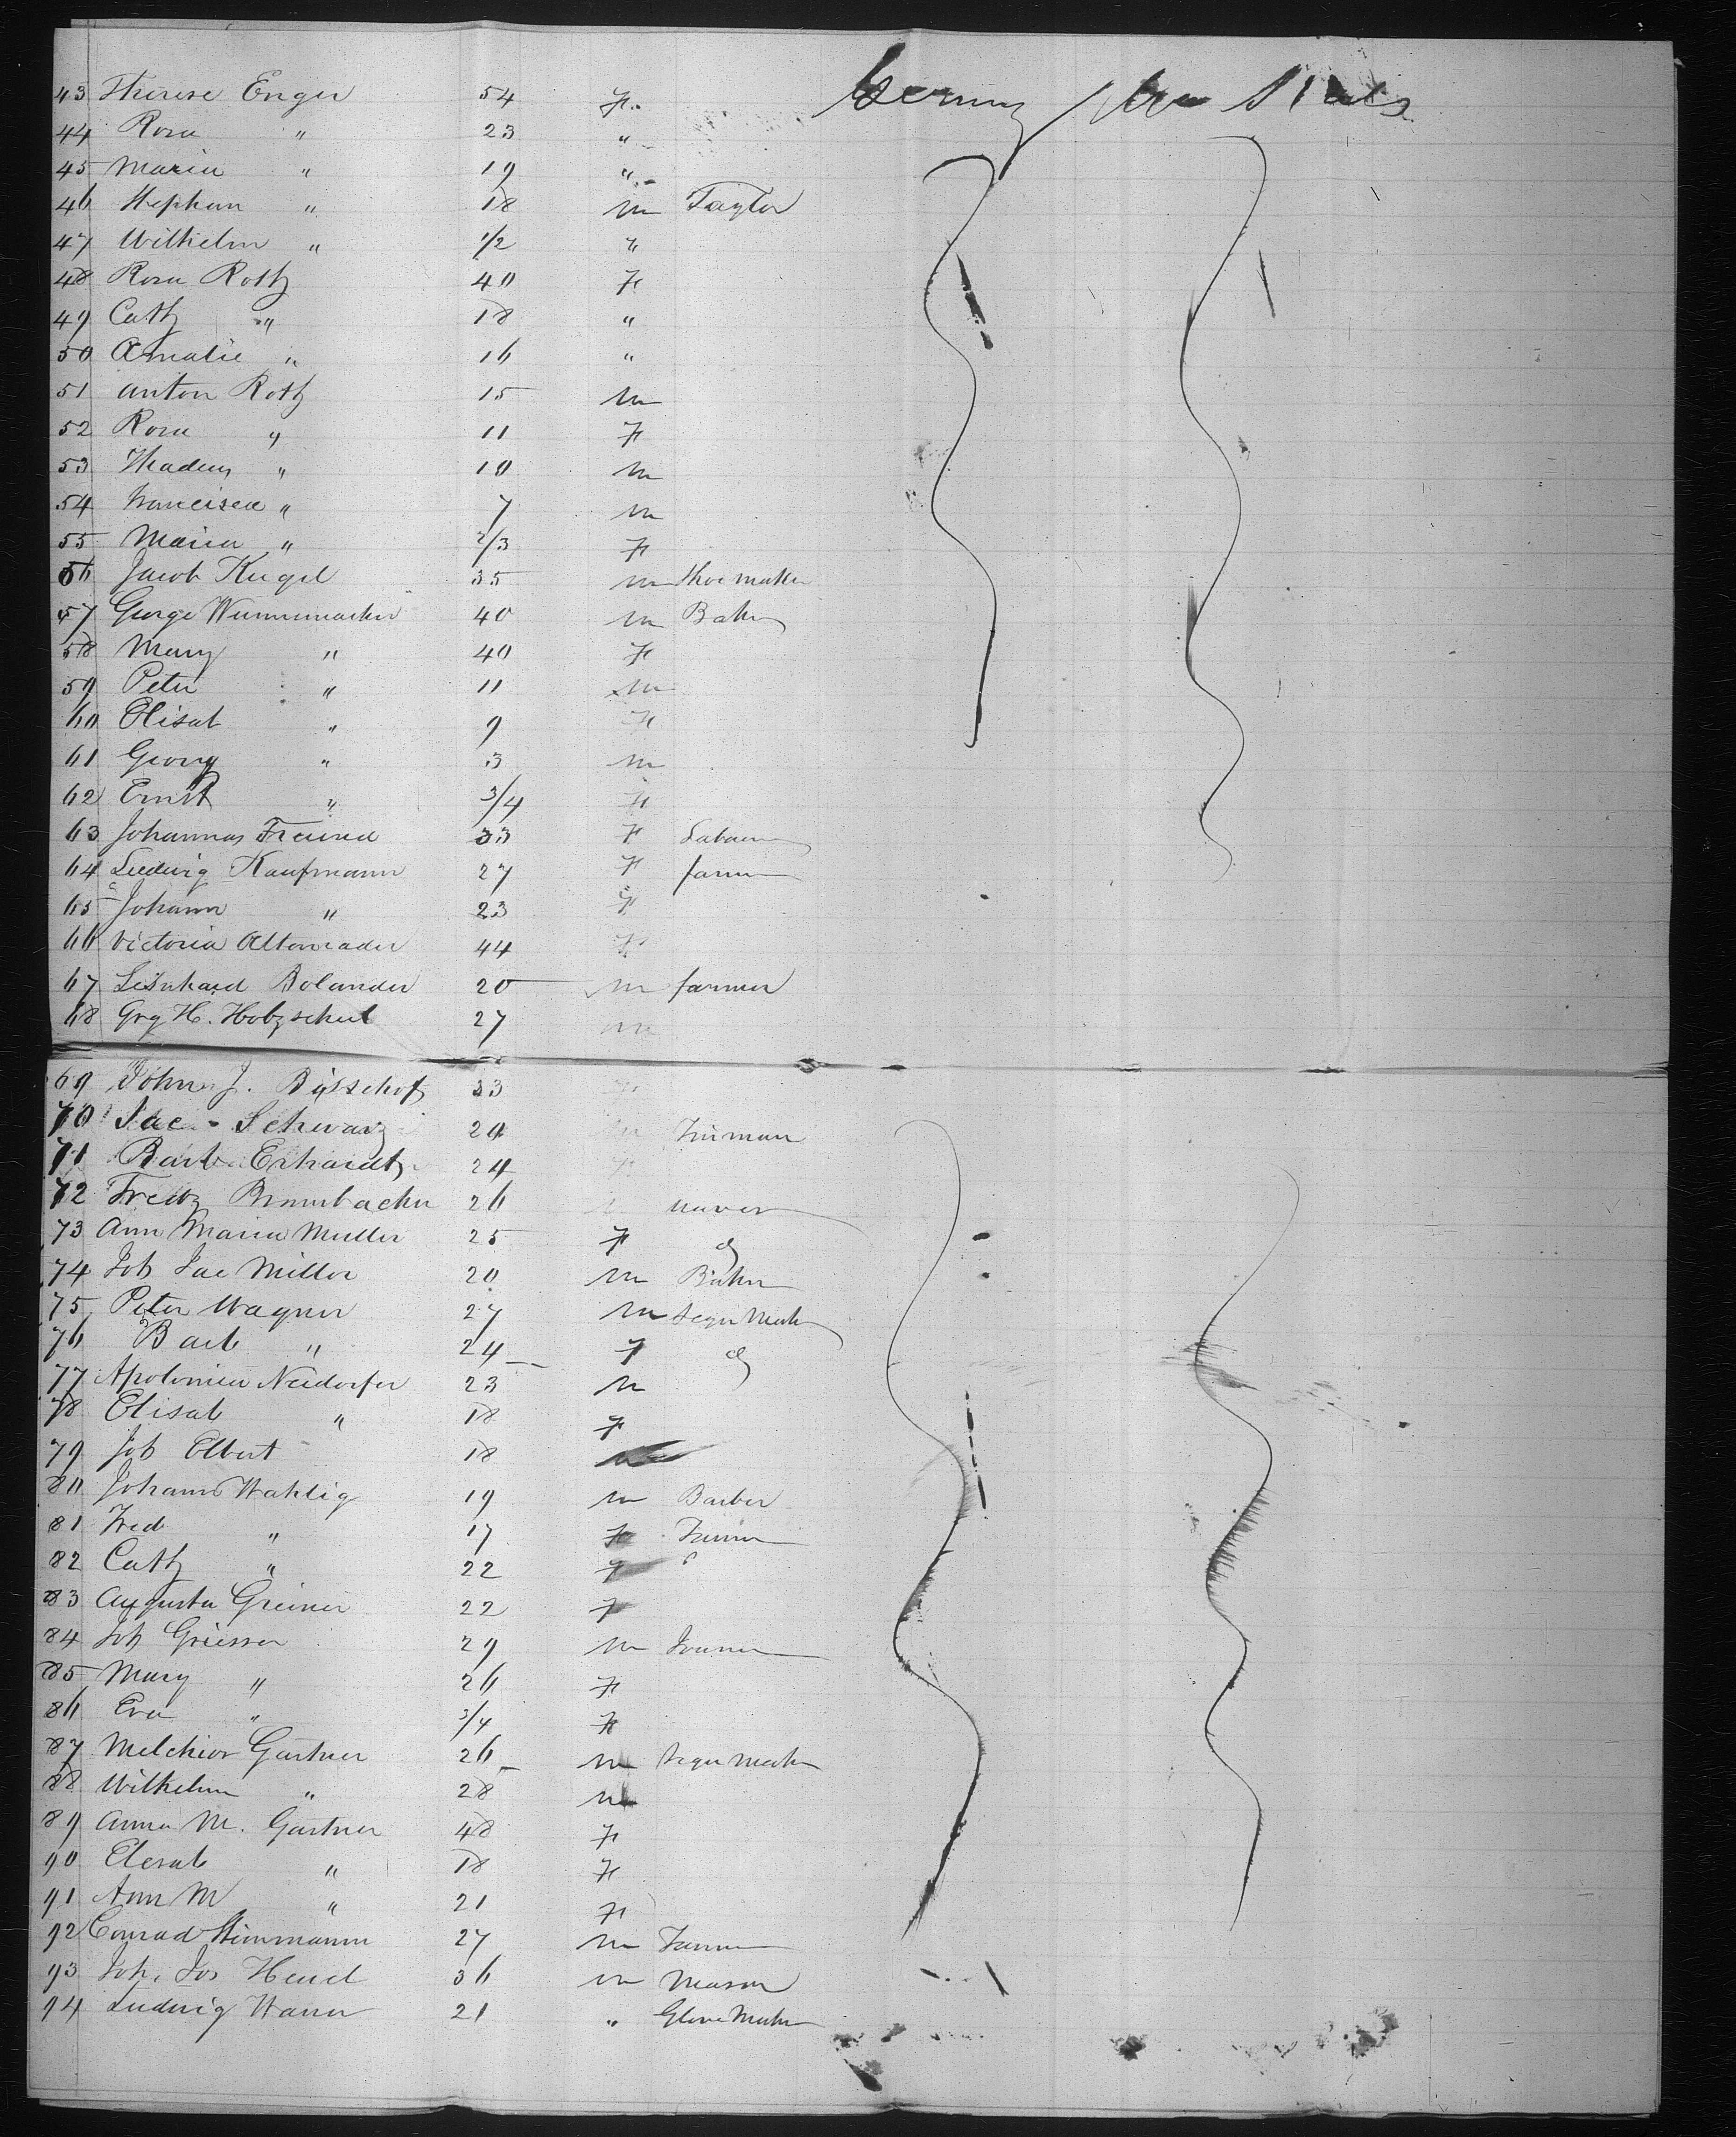 43 Therese Enger 54 F. Germany
44 Rosa " 23 "
45 Maria " 19 "
46 Stephan " 18 m Taylor
47 Wilhelm " 1/2 "
48 Rosa Roth 40 F
49 Cath " 18 "
50 Amalie " 16 "
51 Anton Roth 15 m
52 Rosa " 11 F
53 Thadeus " 10 m
54 Francisca " 7 m
55 Maria " 2/3 F
56 Jacob Kugel 35 m Shoemaker
57 George 40 m Baker
58 Mary " 40 F
59 Peter " 11 m
60 Elisab " 9 F
61 Georg " 3 m
62 Ernst " 3/4 F
63 Johannes Freund 33 F
64 Ludwig Kaufmann 27 F farmer
65 Johann " 23 F
66 Victoria 44 F
67 Leonhard Bolander 20 m farmer
68 Grg H. 27 m
69 John J. Bisschof 33 F
70 Jac. Schwarz 20 m
71 Barb. Erhardt 24 F
72 26
73 Ann Maria Muller 25 F
74 Joh Jac Miller 20 m Baker
75 Peter Wagner 27 m Segar Maker
76 Barb " 24 F
77 Apolonia Neidorfer 23 m
78 Elisab " 18 F
79 Joh Elbert 18
80 Johann Wahlig 19 m Barber
81 Fred " 17 F Farmer
82 Cath " 22 F
83 Augusta Greiner 22 F
84 Joh Griesser 29 m
85 Mary " 26 F
86 Eva " 3/4 F
87 Melchior Gartner 26 m Segar Maker
88 Wilhelm " 28 m
89 Anna M. Gartner 48 F
90 Elesab " 18 F
91 Ann M " 21 F
92 Conrad 27 m Farmer
93 Joh. Jos 36 m Mason
94 Ludwig 21 " Glove Maker